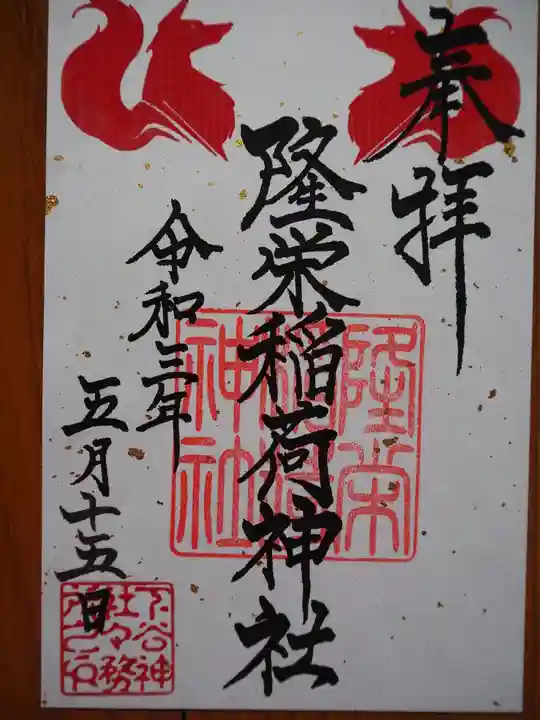 奉拝
隆栄稲荷神社
隆栄稲荷神社
令和三年
五月十五日
下谷神社々務所之印